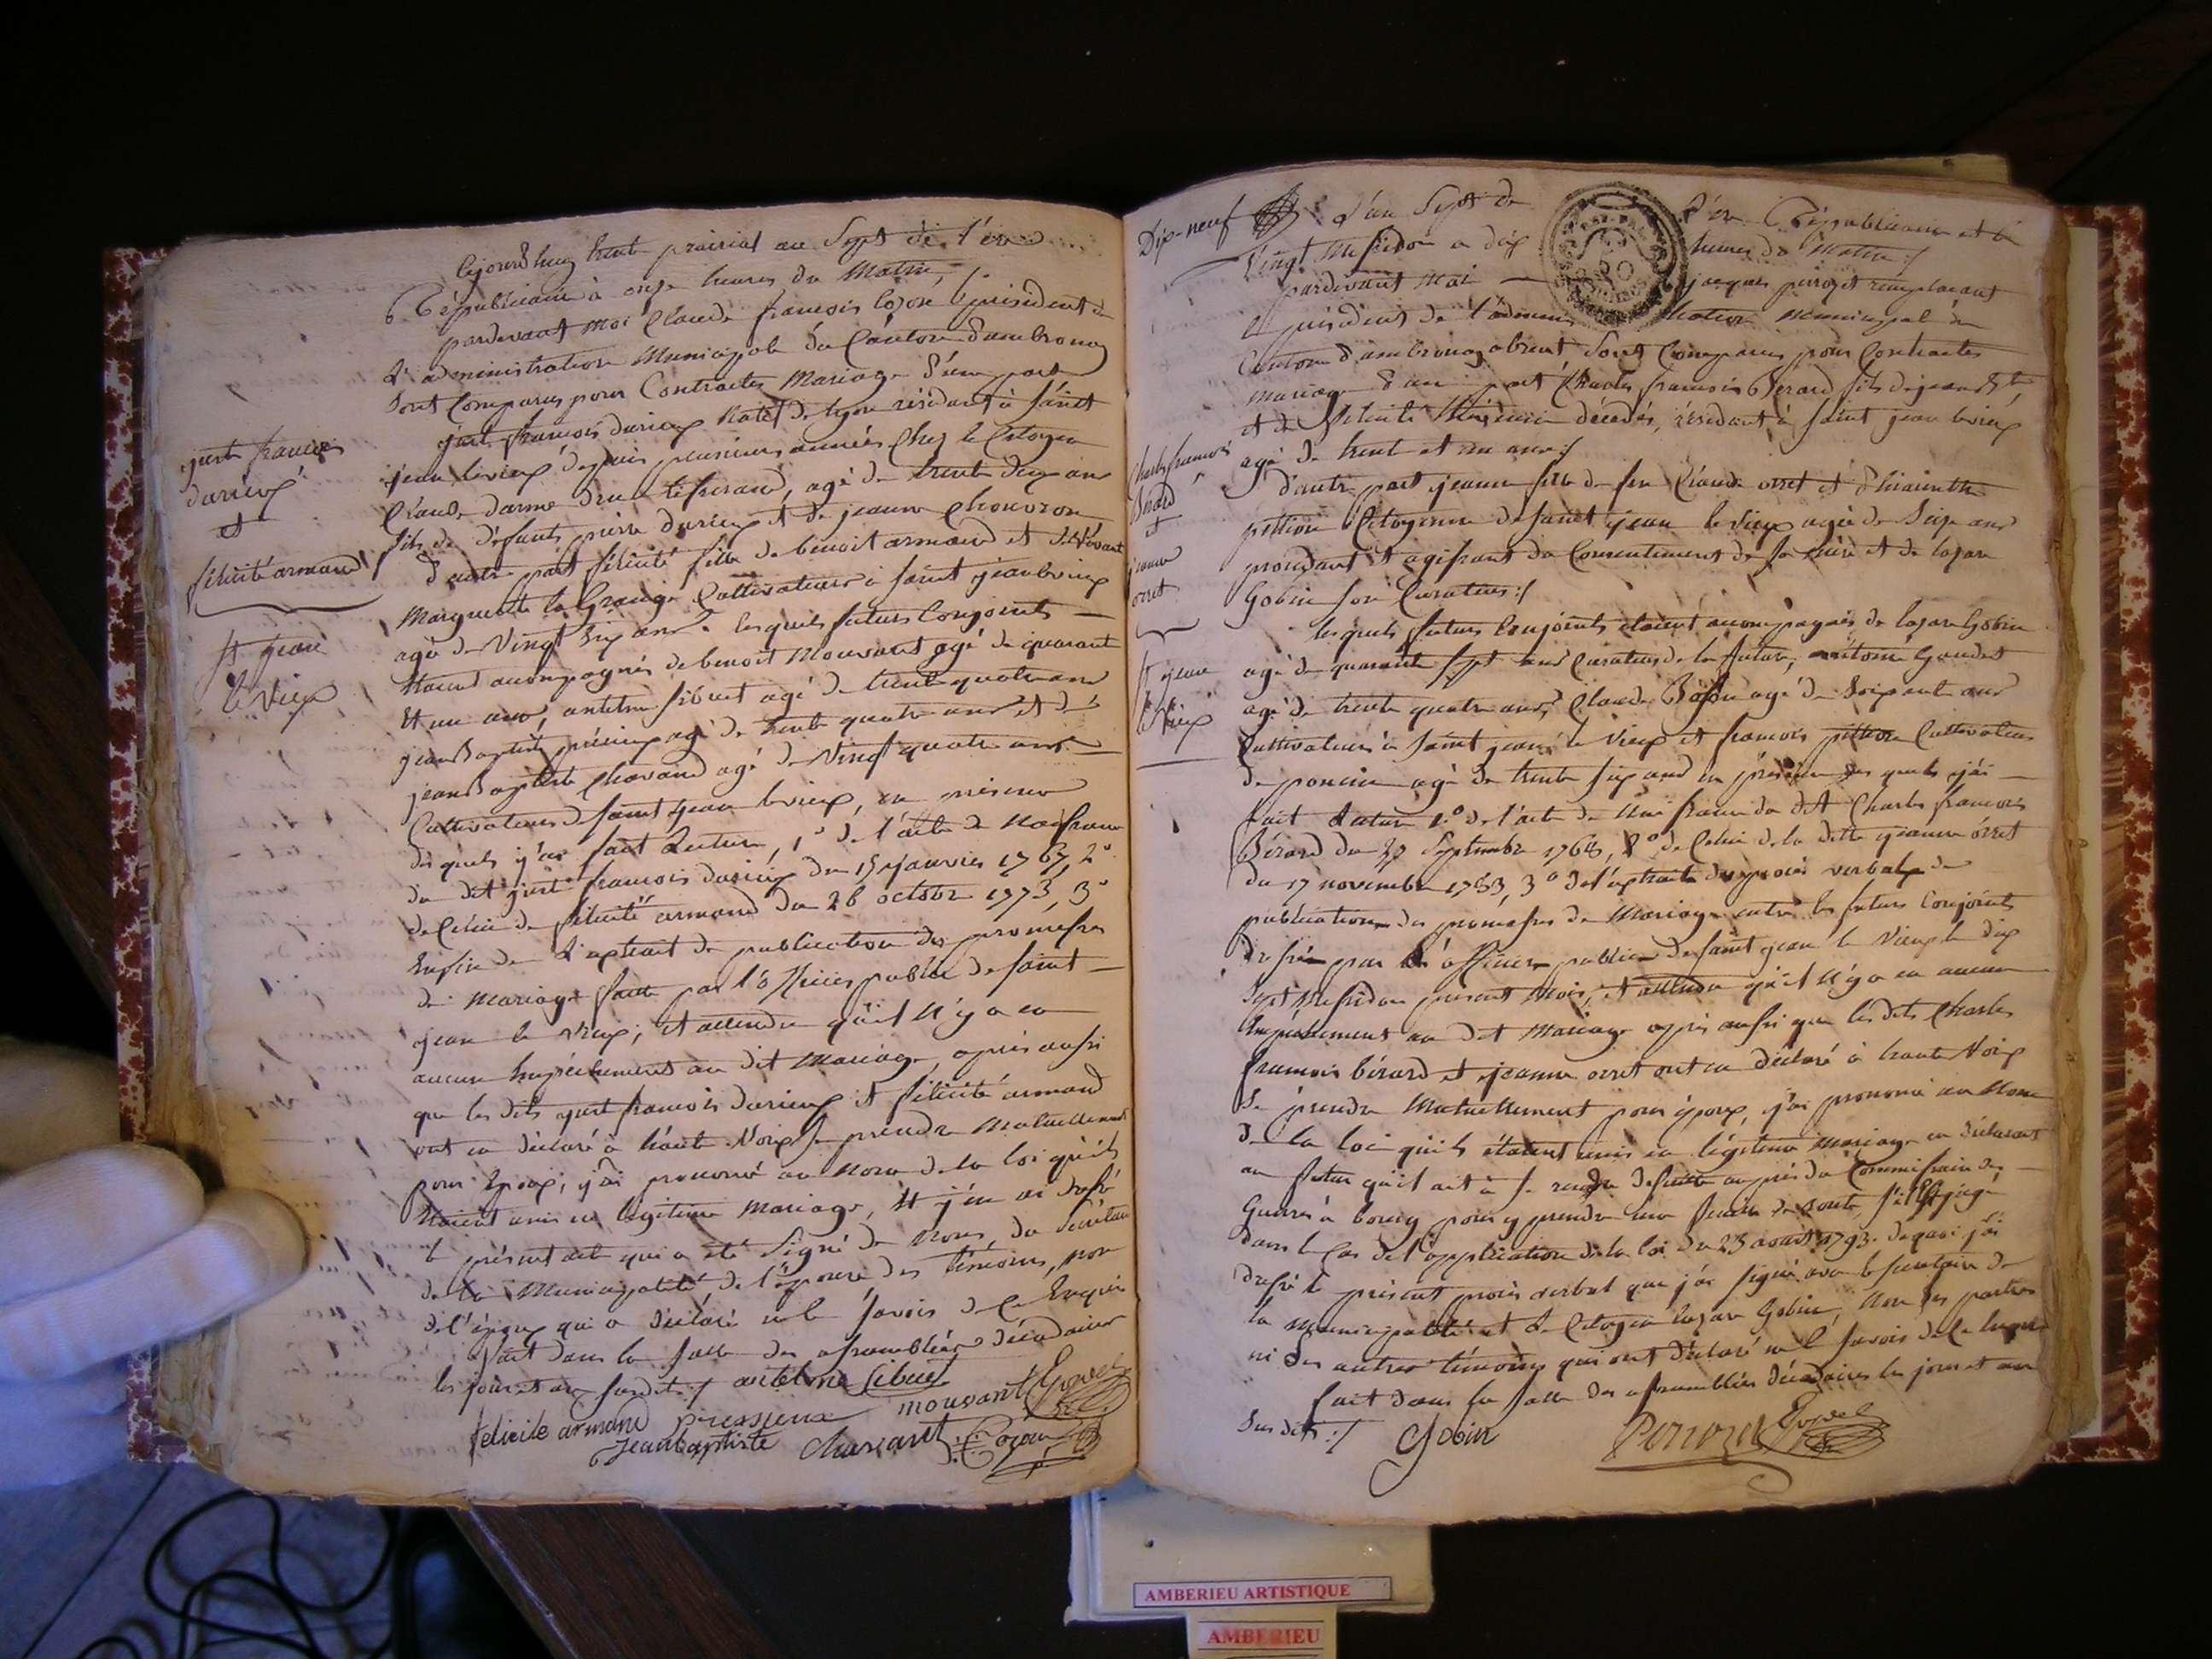 Cejourdhuy trente prairial an Sept de l'ere
Républicaine à onze heures du Matin,
pardevant moi Claude francois Cozon président de
L'administration Municipale du Canton d'ambronay
Sont Comparus pour Contracter Mariage d'une part
just francois durieux natif de lyon résidant à Saint
jean le vieux depuis plusieurs années Chez le Citoyen
Claude darme, agé de trente deux ans
fils de défunts pierre durieux et de jeanne
d'autre part félicité fille de benoit armand et de vivant
Marguerite la Grange Cultivateurs à Saint jean le vieux
agée de Vingt Six ans. lesquels futurs Conjoints
étaient accompagnés de benoit Mouvant agé de quarant
Et un ans, antelme sibuet agé de trente quatre ans
jean Baptiste agé de trente quatre ans et de
jean Baptiste Chavand agé de Vingt quatre ans
Cultivateurs de Saint jean le vieux, en présence
desquels j'ai fait Lecture, 1° de l'acte de Naissance
du dit just francois durieux du 15 janvier 1767, 2°
de Celui de félicité armand du 26 octobre 1773, 3°
Enfin de L'extrait de publication des promesses
de Mariage faite par l'officier public de Saint
jean le Vieux; et attendu qu'il N'y a eu
aucun Empéchement au dit Mariage, après aussi
que les dits just francois durieux et félicité armand
ont eu déclaré à haute Voix se prendre Mutuellement
pour Epoux, j'ai prononcé au Nom de la loi qu'ils
étaient unis en légitime Mariage, Et j'en ai dressé
le présent acte qui a été Signé de Nous, du secrétaire
de la Municipalité, de l'épouse des témoins, non
de l'époux qui a déclaré ne le Savoir de ce Enquis
fait dans la Salle des assemblées décadaires
les jour et an susdits ./ antelme Sibuet
mouvant
félicite armand
jeanbaptiste chavant Cozon
just francois
durieux
et
félicité armand
St jean
le Vieux
Dix-neuf
L'an Sept de l'ere Républicaine et le
Vingt Messidor a dix heures du Matin ./
pardevant Moi jacques perrozet remplacant
le président de l'administration Municipale du
Canton d'ambronay absent Sont Comparus pour Contracter
mariage d'une part Charles francois Bérard fils de jean Bte,
et de décédés, résidant à Saint jean le vieux
agé de trente et un ans ./
d'autre part jeanne fille de feu Claude orset et d'hiacinthe
pittion Citoyenne de Saint jean le Vieux agée de Seize ans
procédant et agissant du Consentement de sa Mère et de lazare
Gobin son Curateur ./
lesquels futurs Conjoints étaient accompagnés de lazare Gobin
agé de quarante Sept ans Curateur de la future, antoine Goudet
agé de trente quatre ans, Claude agé de Soixante ans
Cultivateurs à Saint jean le Vieux et francois pittion Cultivateur
de poncin agé de trente Six ans en présence des quels j'ai
fait Lecture 1° de l'acte de Naissance du dit Charles francois
Bérard du 30 Septembre 1768, 2° de Celui de la ditte jeanne orset
du 17 novembre 1783, 3° de l'extrait du procès verbal de
publication des promesses de Mariage entre les futurs Conjoints
dressé par L'officier public de Saint jean le Vieux le dix
Sept Messidor présent Mois, et attendu qu'il N'y a eu aucun
Empéchement au dit Mariage après aussi que les dits Charles
francois bérard et jeanne orset ont eu déclaré à haute Voix
Se prendre Mutuellement pour époux, j'ai prononcé au Nom
de la loi qu'ils étaient unis en légitime Mariage en déclarant
au futur qu'il ait à se rendre de suite auprès du Commissaire des
Guerres à bourg pour y prendre une feuille de route, s'il est jugé
dans le Cas de l'application de la loi du 23 aoust 1793. de quoi j'ai
dressé le présent procès verbal que j'ai signé avec le secrétaire de
la municipalité et le Citoyen lazare Gobin, Non des parties
ni des autres témoins qui ont déclaré ne le savoir de ce Enquis
fait dans la Salle des assemblées décadaires les jour et an
Sus dits ./ Gobin Perrozet
Charles francois
Bérard
et
jeanne
orset
St jeane
le Vieux
AMBERIEU ARTISTIQUE
AMBERIEU